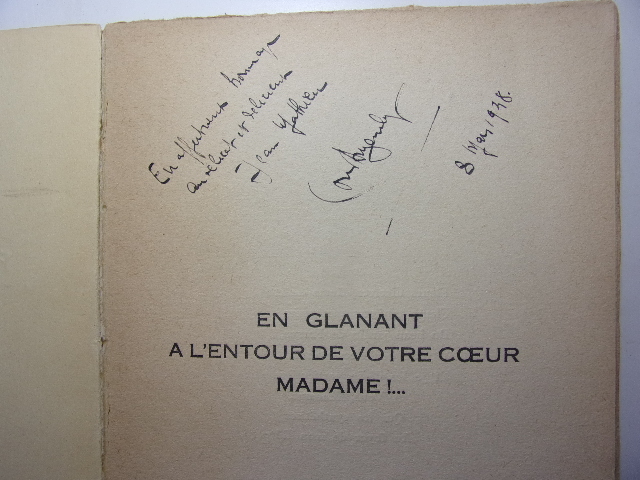 En affectueux hommage
au délicat et délicieux
Jean Mathieu
8 Mai 1938.
EN GLANANT
A L'ENTOUR DE VOTRE CŒUR
MADAME !...